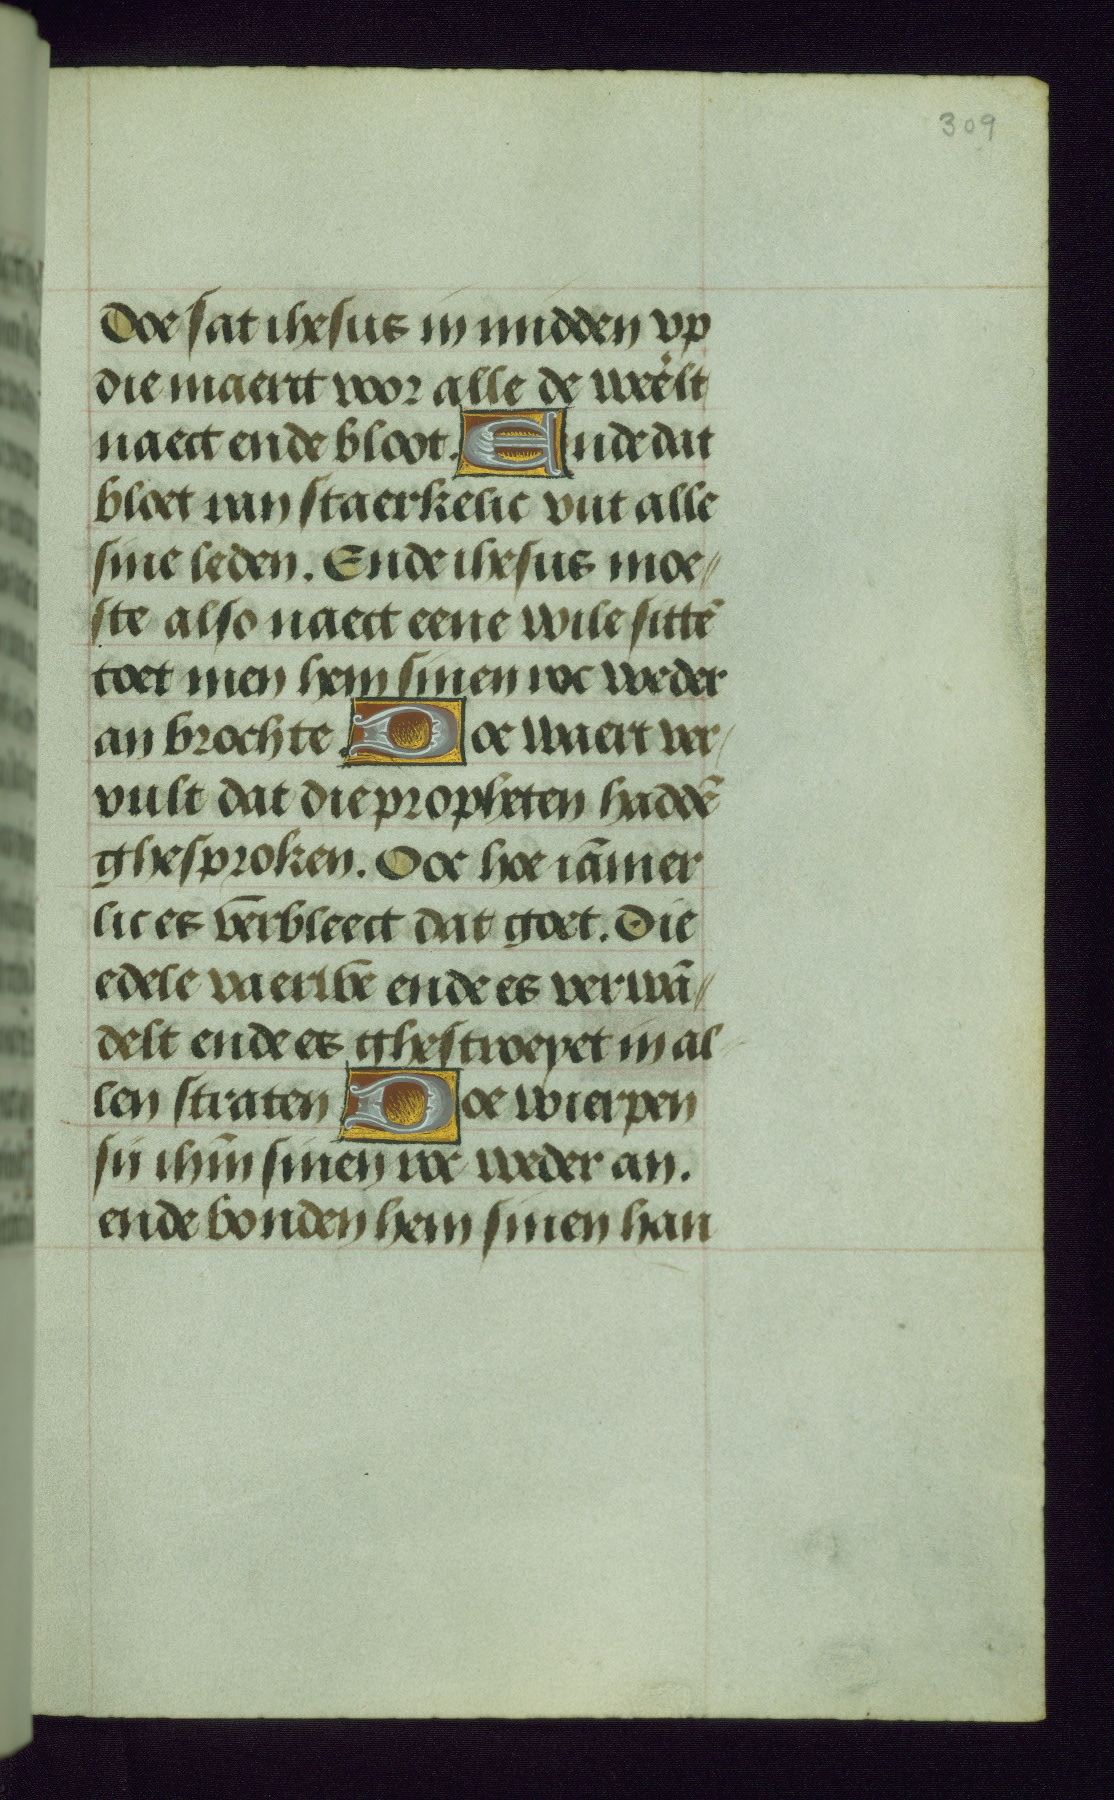 309
Doe sat ihesus in midden vp
die maerct voor alle de weelt
naect ende bloot. Ende dat
bloet ran staerkelic vut alle
sine leden. Ende ihesus moe//
ste also naect eene wile sittē
toet men hem sinen roc weder
an brochte. Doe waert ver/
vult dat die propheten haddē
ghesproken. Doe hoe iām̄er
lic es verbleect dat goet. Die
edele vaerwe ende es verwā//
delt ende es ghestroeyet in al
len straten Doe wierpen
sij ihm̄ sinen roc weder an.
ende bonden hem sinen han